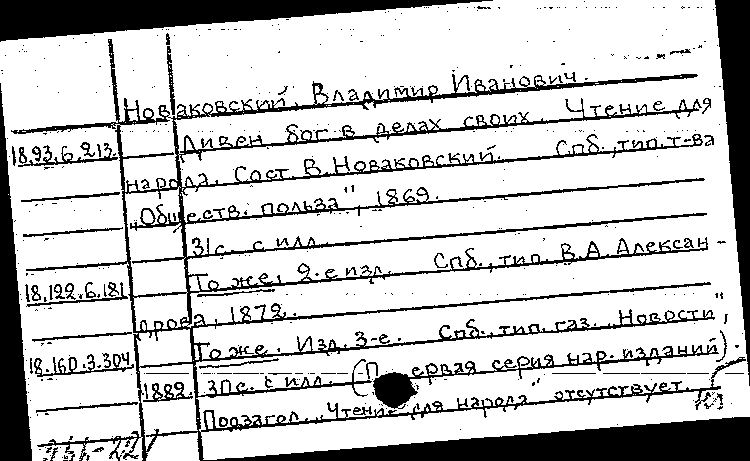 Новаковский, Владимир Иванович.
18.93.6.213. Дивен бог в делах своих. Чтение для
народа. Сост. В. Новаковский. Спб., тип. т-ва
„Обществ. польза", 1869.
31с. с илл.
18.122.6.181 То же. 2-е изд. Спб., тип. В.А. Алексан-
дрова, 1872.
18.160.3.304 То же. Изд. 3-е. Спб., тип. газ. „Новости",
1882. 30с. с илл. (Первая серия нар. изданий).
Подзагол. „Чтение для народа" отсутствует.